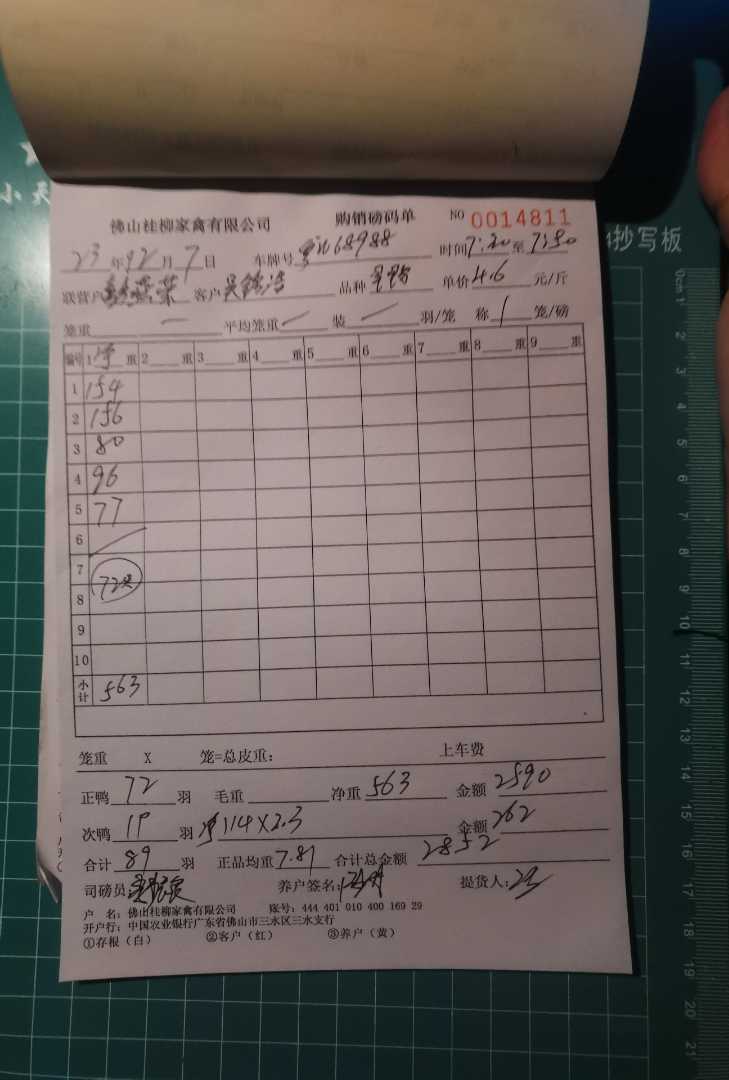 小天
抄写板
佛山桂柳家禽有限公司 购销磅码单 NO 0014811
23年12月7日 车牌号 68988 时间7:20至7:50
联营户 荣 客户吴 浩 品种 单价4.6元/斤
笼重 — 平均笼重 — 装 — 羽/笼 称 1 笼/磅
编号 1净重 2 重 3 重 4 重 5 重 6 重 7 重 8 重 9 重
1 154
2 156
3 80
4 96
5 77
6
7
72只
8
9
10
小计 563
笼重 X 笼=总皮重： 上车费
正鸭72羽 毛重 净重563 金额2590
次鸭17羽 净114×2.3 金额262
合计89羽 正品均重7.81 合计总金额2852
司磅员： 养户签名： 提货人：
户 名：佛山桂柳家禽有限公司 账号：444 401 010 400 169 29
开户行：中国农业银行广东省佛山市三水区三水支行
①存根（白） ②客户（红） ③养户（黄）
0cm 1
2
3
4
5
6
7
8
9
10
11
12
13
14
15
16
17
18
19
20
21